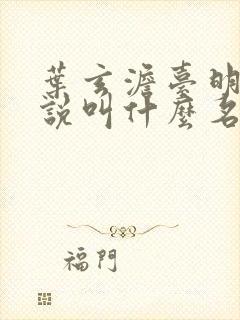 葉玄澹臺明
說叫什麼名
福門